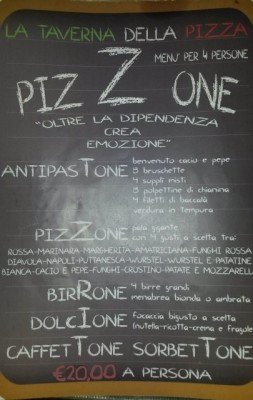 LA TAVERNA DELLA PIZZA
MENU' PER 4 PERSONE
PIZZONE
"OLTRE LA DIPENDENZA
CREA
EMOZIONE"
ANTIPASTONE
benvenuto cacio e pepe
8 bruschette
4 supplì misti
8 polpettine di chianina
4 filetti di baccalà
verdura in tempura
PIZZONE
pala gigante
con 4 gusti a scelta trai
ROSSA-MARINARA MARGHERITA-AMATRICIANA-FUNGHI ROSSA
DIAVOLA-NAPOLI-PUTTANESCA-WURSTEL-WURSTEL E PATATINE
BIANCA-CACIO E PEPE-FUNGHI-CROSTINO-PATATE E MOZZARELLA
BIRRONE
4 birre grandi
menabrea bionda o ambrata
DOLCIONE
focaccia bigusto a scelta
(nutella-ricotta-crema e fragole)
CAFFETTONE SORBETTONE
€20,00 A PERSONA